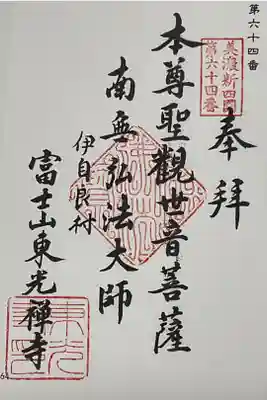 第六十四番
美濃新四国
第六十四番
奉拝
本尊聖觀世音菩薩
南無弘法大師
伊自良村
富士山東光禅寺
64